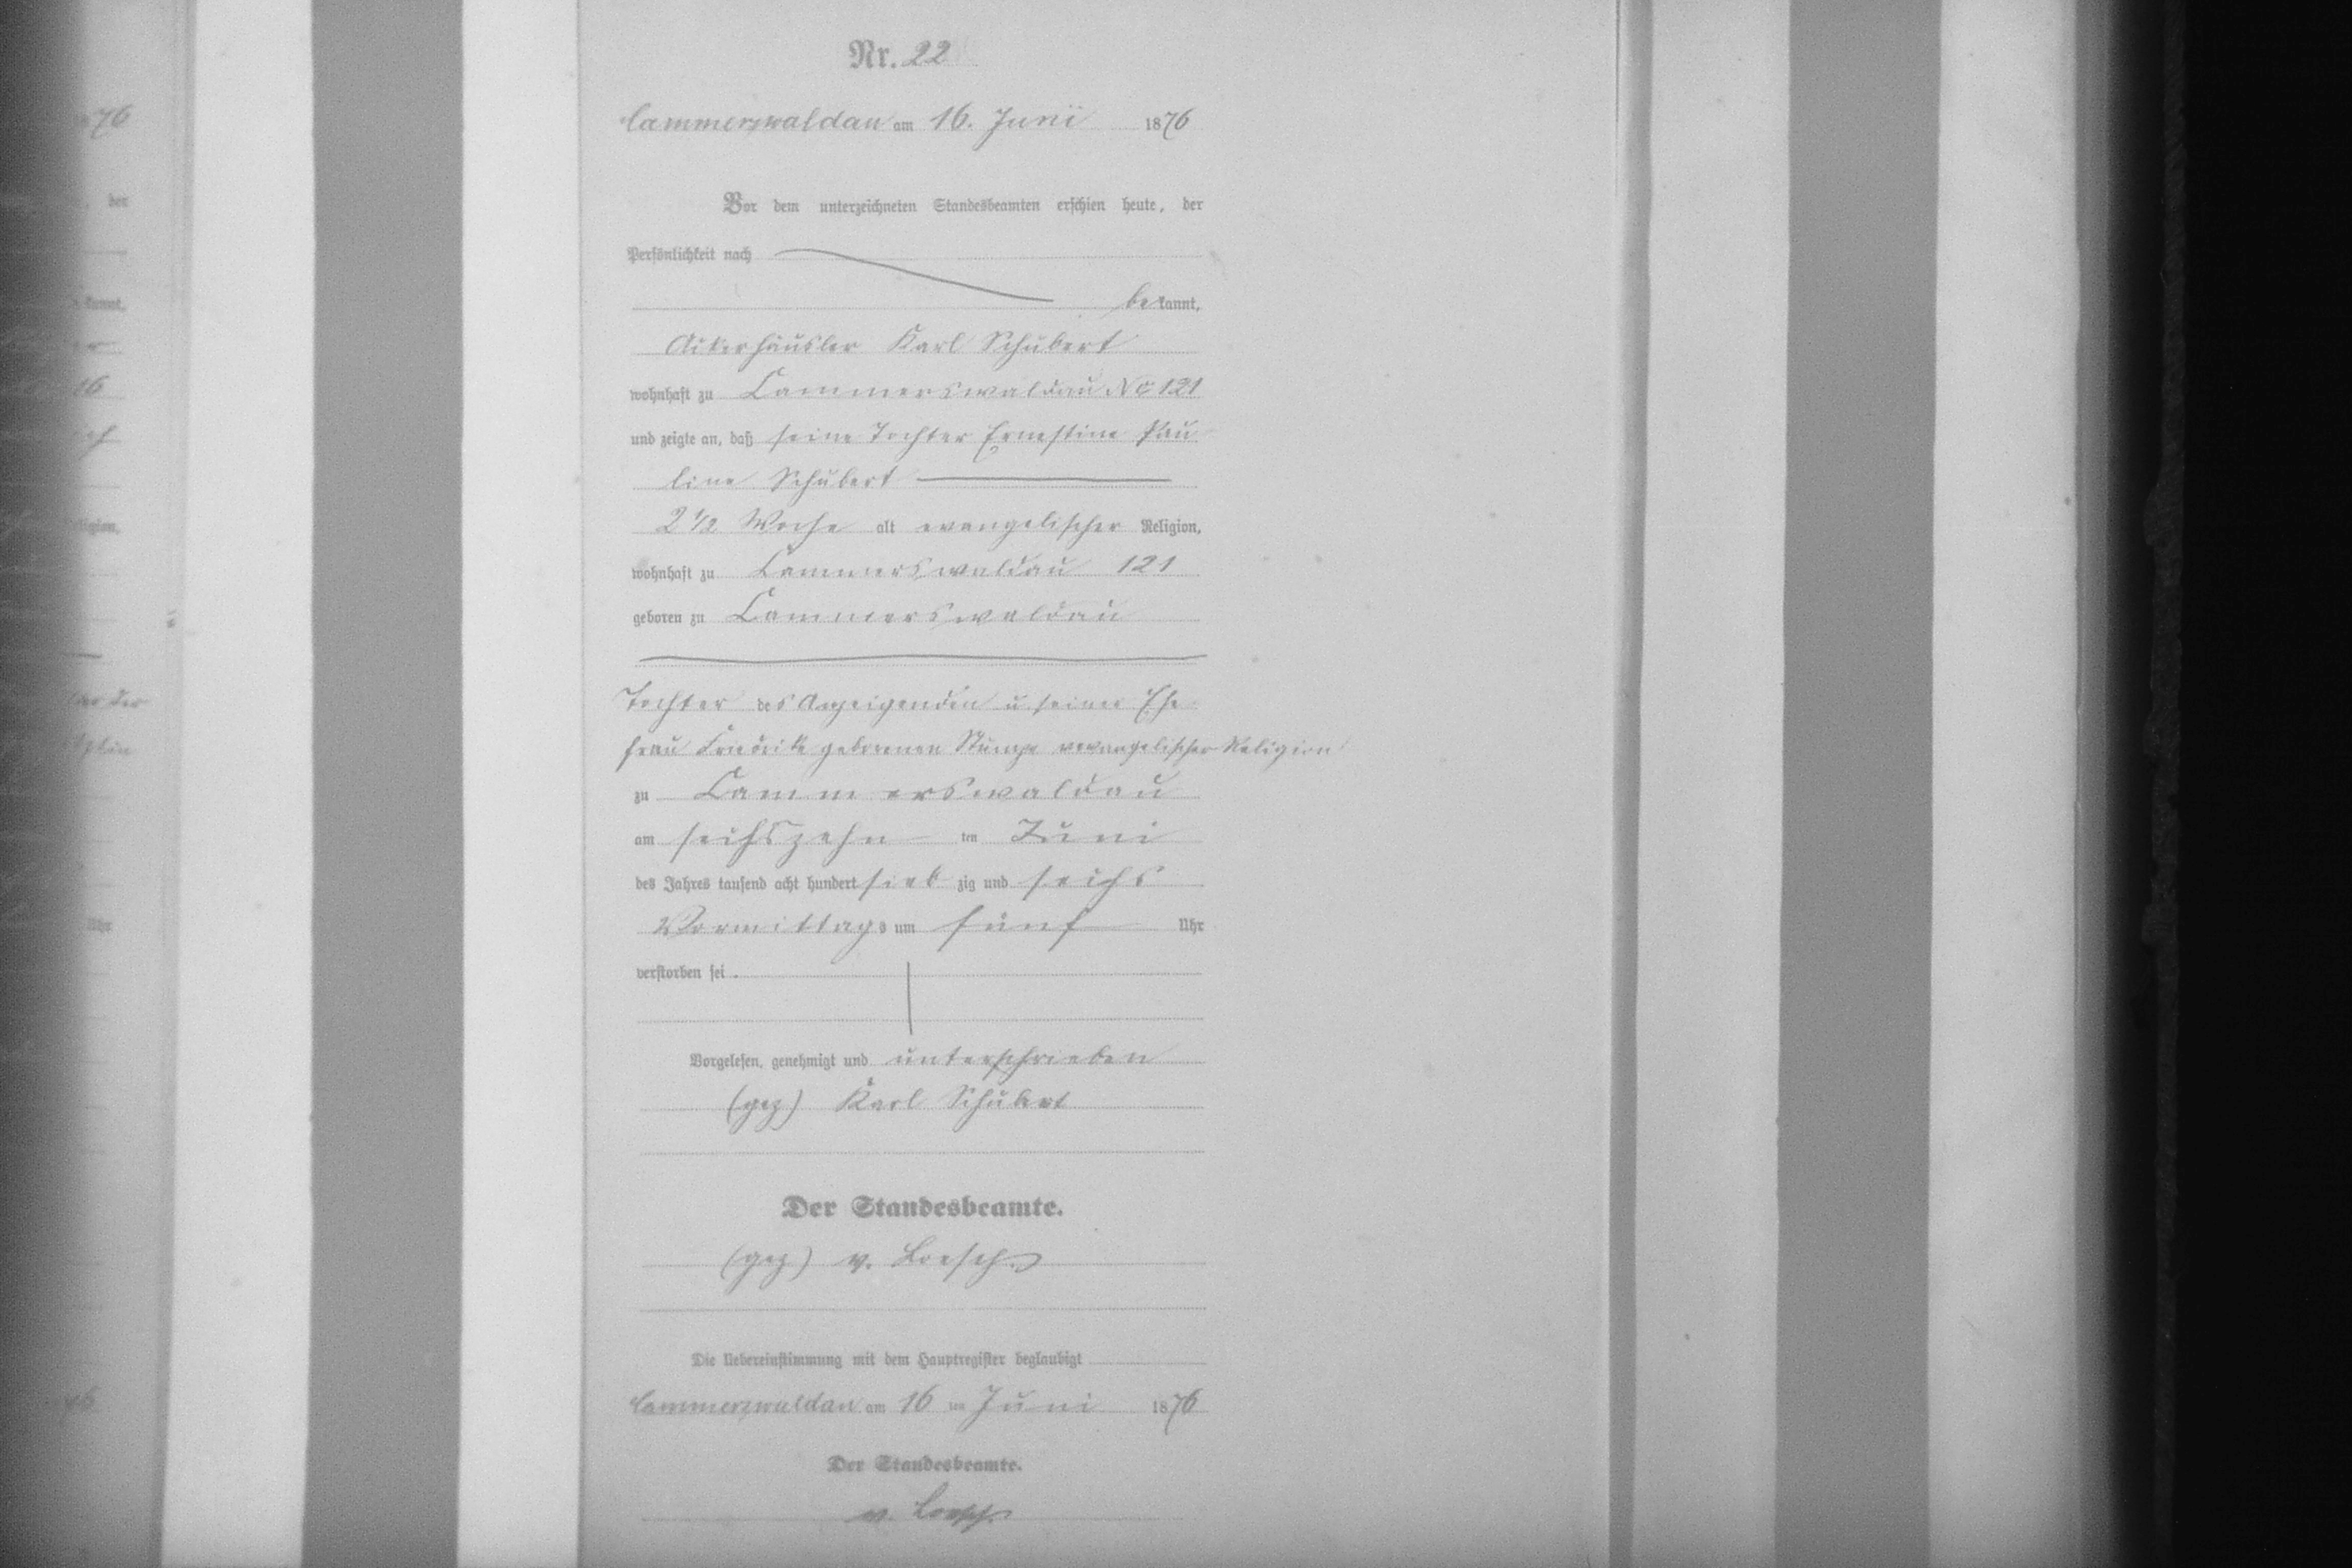 Nr. 22
Cammerswaldau am 16. Juni 1876
Vor dem unterzeichneten Standesbeamten erschien heute, der
Persönlichkeit nach
bekannt,
Ackerhäusler Karl Schubert
wohnhaft zu Cammerswaldau No 121
und zeigte an, daß seine Tochter Ernestine Pau
line Schubert
2 1/2 Woche alt evangelischer Religion,
wohnhaft zu Cammerswaldau 121
geboren zu Cammerswaldau
Tochter des Anzeigenden u seiner Ehe
frau Friedrike geborenen Stumpe evangelischer Religion
zu Cammerswaldau
am sechszehn ten Juni
des Jahres tausend acht hundert sieb zig und sechs
Vormittags um fünf Uhr
verstorben sei.
Vorgelesen, genehmigt und unterschrieben
(gez) Karl Schubert
Der Standesbeamte.
(gez) v. Loesch
Die Uebereinstimmung mit dem Hauptregister beglaubigt
Cammerswaldau am 16 ten Juni 1876
Der Standesbeamte.
v. Loesch.